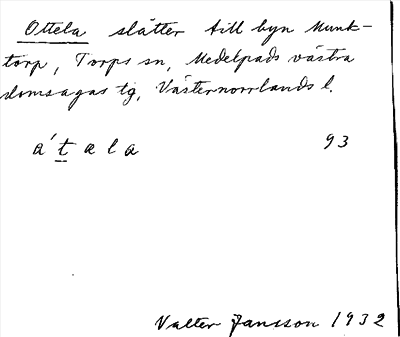 Ottela slåtter till byn Munk-
torp, Torps sn, Medelpads västra
domsagas tg, Västernorrlands l.
a´ t a l a 93
Valter Jansson 1932